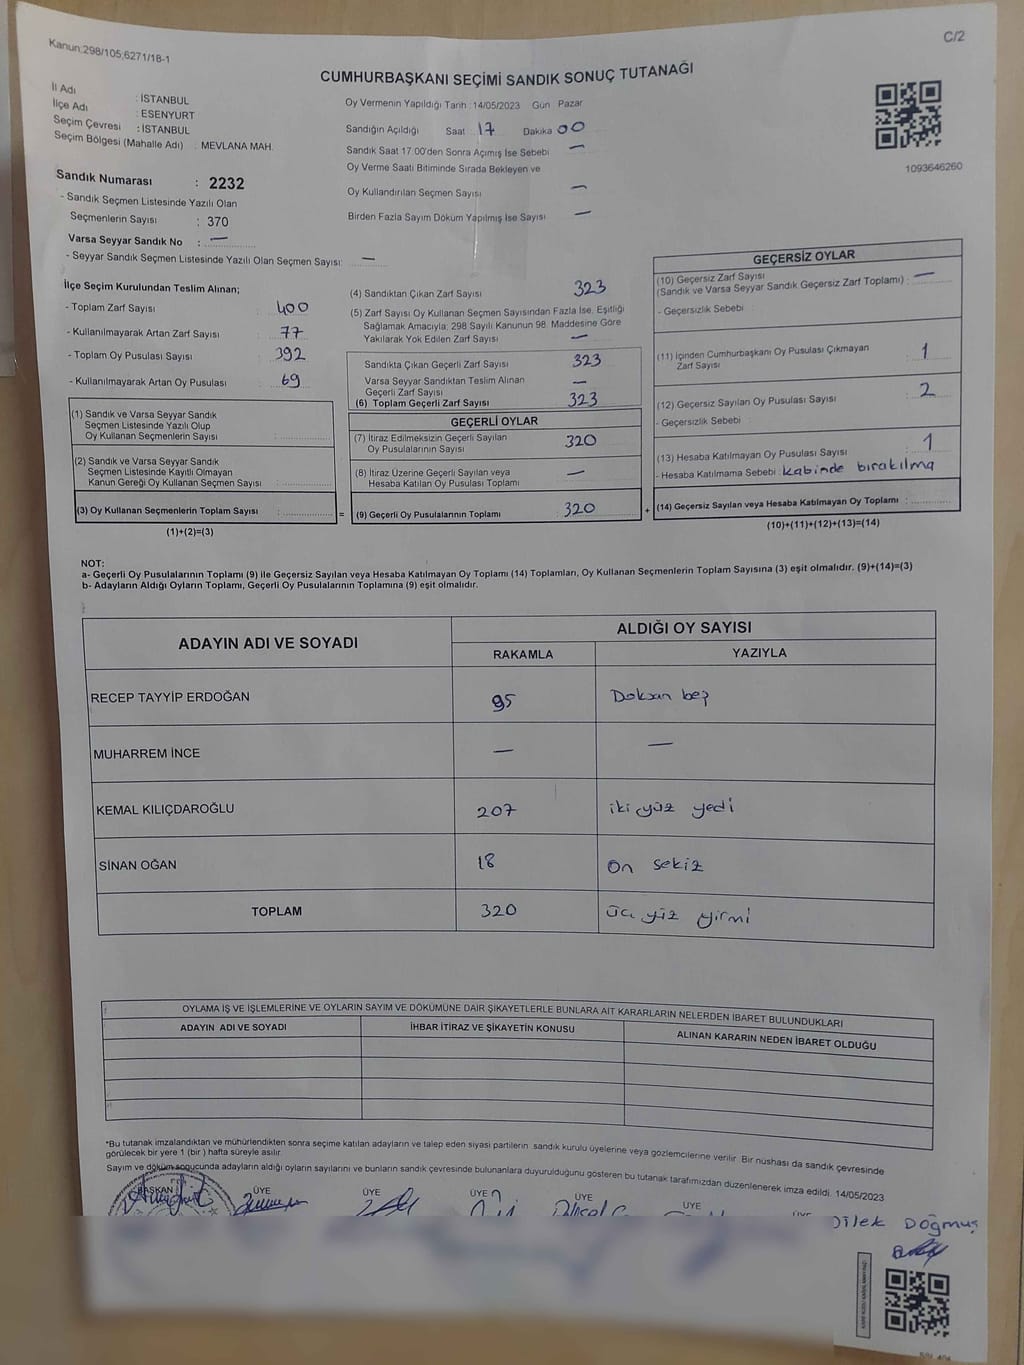 Kanun:298/105;6271/18-1
C/2
CUMHURBAŞKANI SEÇİMİ SANDIK SONUÇ TUTANAĞI
İl Adı : İSTANBUL
İlçe Adı : ESENYURT
Seçim Çevresi : İSTANBUL
Seçim Bölgesi (Mahalle Adı) . MEVLANA MAH.
Sandık Numarası : 2232
- Sandık Seçmen Listesinde Yazılı Olan
Seçmenlerin Sayısı : 370
Varsa Seyyar Sandık No : —
- Seyyar Sandık Seçmen Listesinde Yazılı Olan Seçmen Sayısı: —
Oy Vermenin Yapıldığı Tarih :14/05/2023 Gün Pazar
Sandığın Açıldığı Saat 17 Dakika 00
Sandık Saat 17:00'den Sonra Açımış İse Sebebi —
Oy Verme Saati Bitiminde Sırada Bekleyen ve
Oy Kullandırılan Seçmen Sayısı —
Birden Fazla Sayım Döküm Yapılmış İse Sayısı —
1093646260
İlçe Seçim Kurulundan Teslim Alınan;
- Toplam Zarf Sayısı : 400
- Kullanılmayarak Artan Zarf Sayısı : 77
- Toplam Oy Pusulası Sayısı : 392
- Kullanılmayarak Artan Oy Pusulası : 69
(1) Sandık ve Varsa Seyyar Sandık
Seçmen Listesinde Yazılı Olup
Oy Kullanan Seçmenlerin Sayısı :
(2) Sandık ve Varsa Seyyar Sandık
Seçmen Listesinde Kayıtlı Olmayan
Kanun Gereği Oy Kullanan Seçmen Sayısı :
(3) Oy Kullanan Seçmenlerin Toplam Sayısı :
(1)+(2)=(3)
(4) Sandıktan Çıkan Zarf Sayısı 323
(5) Zarf Sayısı Oy Kullanan Seçmen Sayısından Fazla İse, Eşitliği
Sağlamak Amacıyla; 298 Sayılı Kanunun 98. Maddesine Göre
Yakılarak Yok Edilen Zarf Sayısı —
Sandıkta Çıkan Geçerli Zarf Sayısı 323
Varsa Seyyar Sandıktan Teslim Alınan
Geçerli Zarf Sayısı —
(6) Toplam Geçerli Zarf Sayısı 323
GEÇERLİ OYLAR
(7) İtiraz Edilmeksizin Geçerli Sayılan
Oy Pusulalarının Sayısı 320
(8) İtiraz Üzerine Geçerli Sayılan veya
Hesaba Katılan Oy Pusulası Toplamı —
= (9) Geçerli Oy Pusulalarının Toplamı 320
GEÇERSİZ OYLAR
(10) Geçersiz Zarf Sayısı
(Sandık ve Varsa Seyyar Sandık Geçersiz Zarf Toplamı) : —
- Geçersizlik Sebebi :
(11) İçinden Cumhurbaşkanı Oy Pusulası Çıkmayan
Zarf Sayısı : 1
(12) Geçersiz Sayılan Oy Pusulası Sayısı : 2
- Geçersizlik Sebebi :
(13) Hesaba Katılmayan Oy Pusulası Sayısı : 1
- Hesaba Katılmama Sebebi : kabinde bırakılma
+ (14) Geçersiz Sayılan veya Hesaba Katılmayan Oy Toplamı :
(10)+(11)+(12)+(13)=(14)
NOT:
a- Geçerli Oy Pusulalarının Toplamı (9) ile Geçersiz Sayılan veya Hesaba Katılmayan Oy Toplamı (14) Toplamları, Oy Kullanan Seçmenlerin Toplam Sayısına (3) eşit olmalıdır. (9)+(14)=(3)
b- Adayların Aldığı Oyların Toplamı, Geçerli Oy Pusulalarının Toplamına (9) eşit olmalıdır.
ADAYIN ADI VE SOYADI ALDIĞI OY SAYISI
RAKAMLA YAZIYLA
RECEP TAYYİP ERDOĞAN 95 Doksan beş
MUHARREM İNCE — —
KEMAL KILIÇDAROĞLU 207 iki yüz yedi
SİNAN OĞAN 18 On sekiz
TOPLAM 320 üç yüz yirmi
OYLAMA İŞ VE İŞLEMLERİNE VE OYLARIN SAYIM VE DÖKÜMÜNE DAİR ŞİKAYETLERLE BUNLARA AİT KARARLARIN NELERDEN İBARET BULUNDUKLARI
ADAYIN ADI VE SOYADI İHBAR İTİRAZ VE ŞİKAYETİN KONUSU ALINAN KARARIN NEDEN İBARET OLDUĞU
*Bu tutanak imzalandıktan ve mühürlendikten sonra seçime katılan adayların ve talep eden siyasi partilerin sandık kurulu üyelerine veya gözlemcilerine verilir. Bir nüshası da sandık çevresinde
görülecek bir yere 1 (bir ) hafta süreyle asılır.
Sayım ve döküm sonucunda adayların aldığı oyların sayılarını ve bunların sandık çevresinde bulunanlara duyurulduğunu gösteren bu tutanak tarafımızdan düzenlenerek imza edildi. 14/05/2023
BAŞKAN ÜYE ÜYE ÜYE ÜYE ÜYE
Dilek Doğmuş